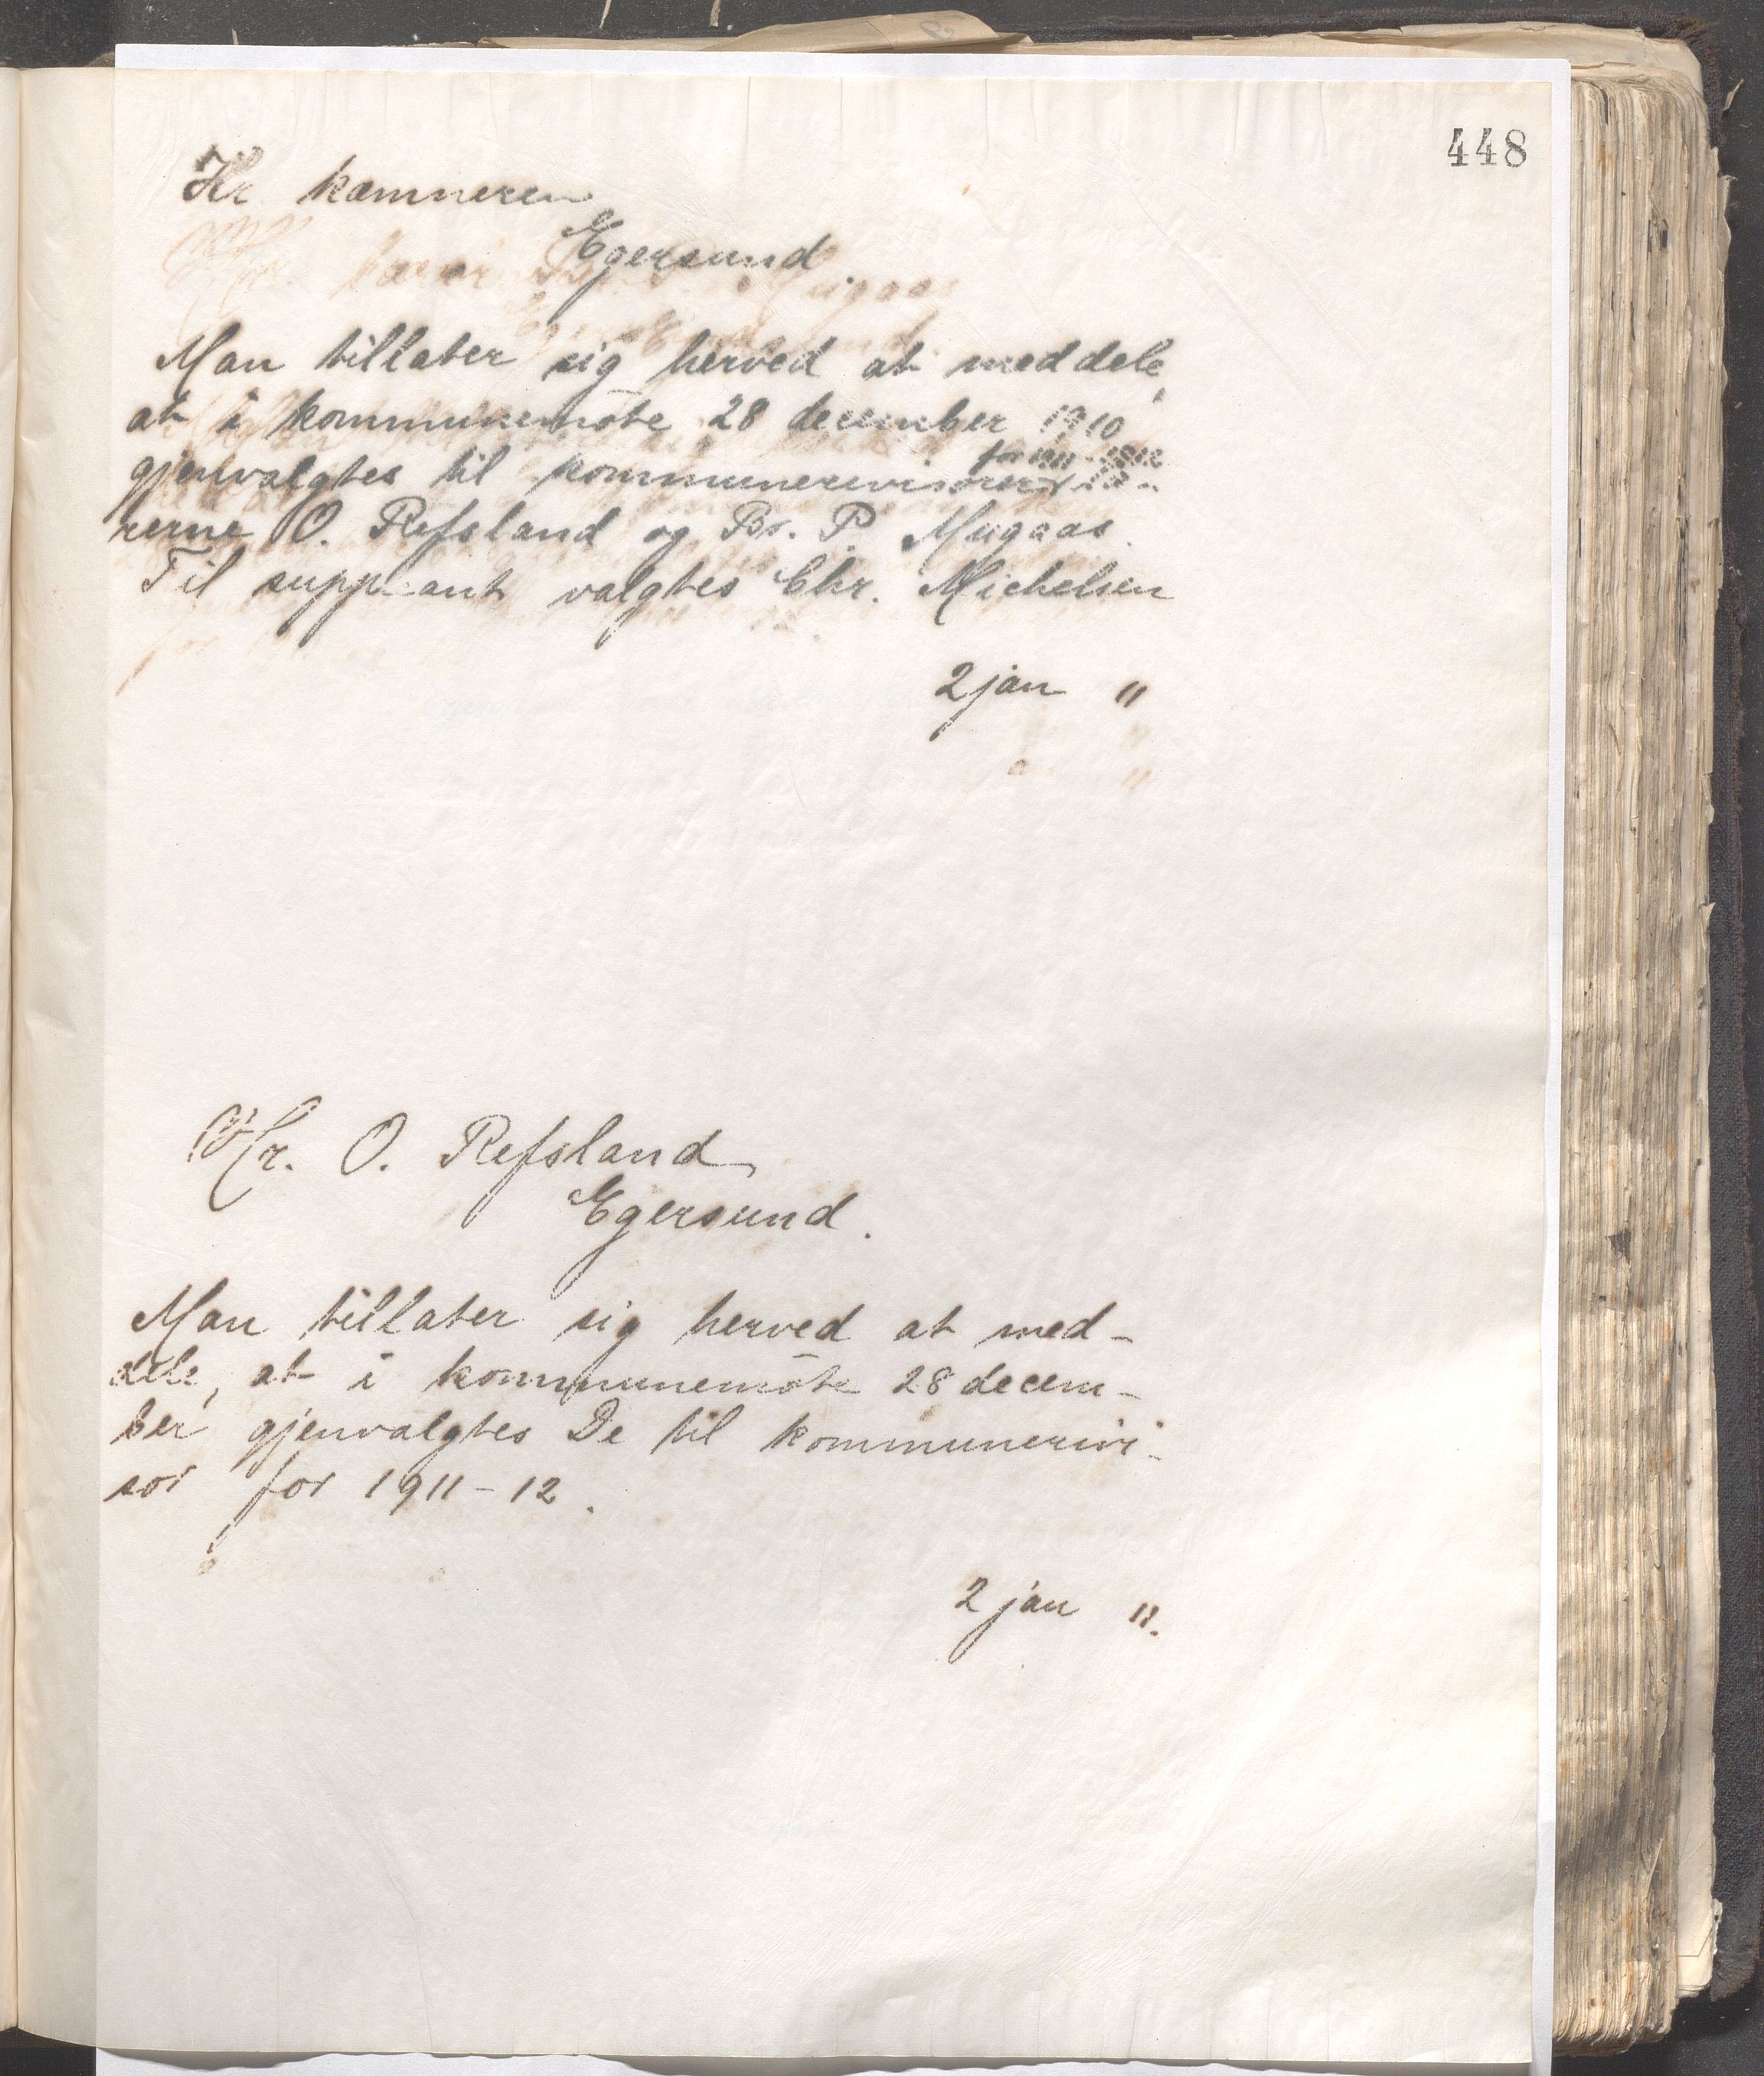 448
Hr kæmneren
Egersund
Man tillater sig herved at meddele,
at i kommunemøte 28 december 1910
for 1911-1912
gjenvalgtes til kommunerevisorer
rerne O. Refsland og Br. P. Mugaas.
Til suppleant valgtes Chr. Michelsen
2 jan 11
Hr. O. Refsland,
Egersund.
Man tillater sig herved at med-
dele, at i kommunemøte 28 decem-
ber gjenvalgtes De til kommunerivi-
sor for 1911-12.
2 jan 11.